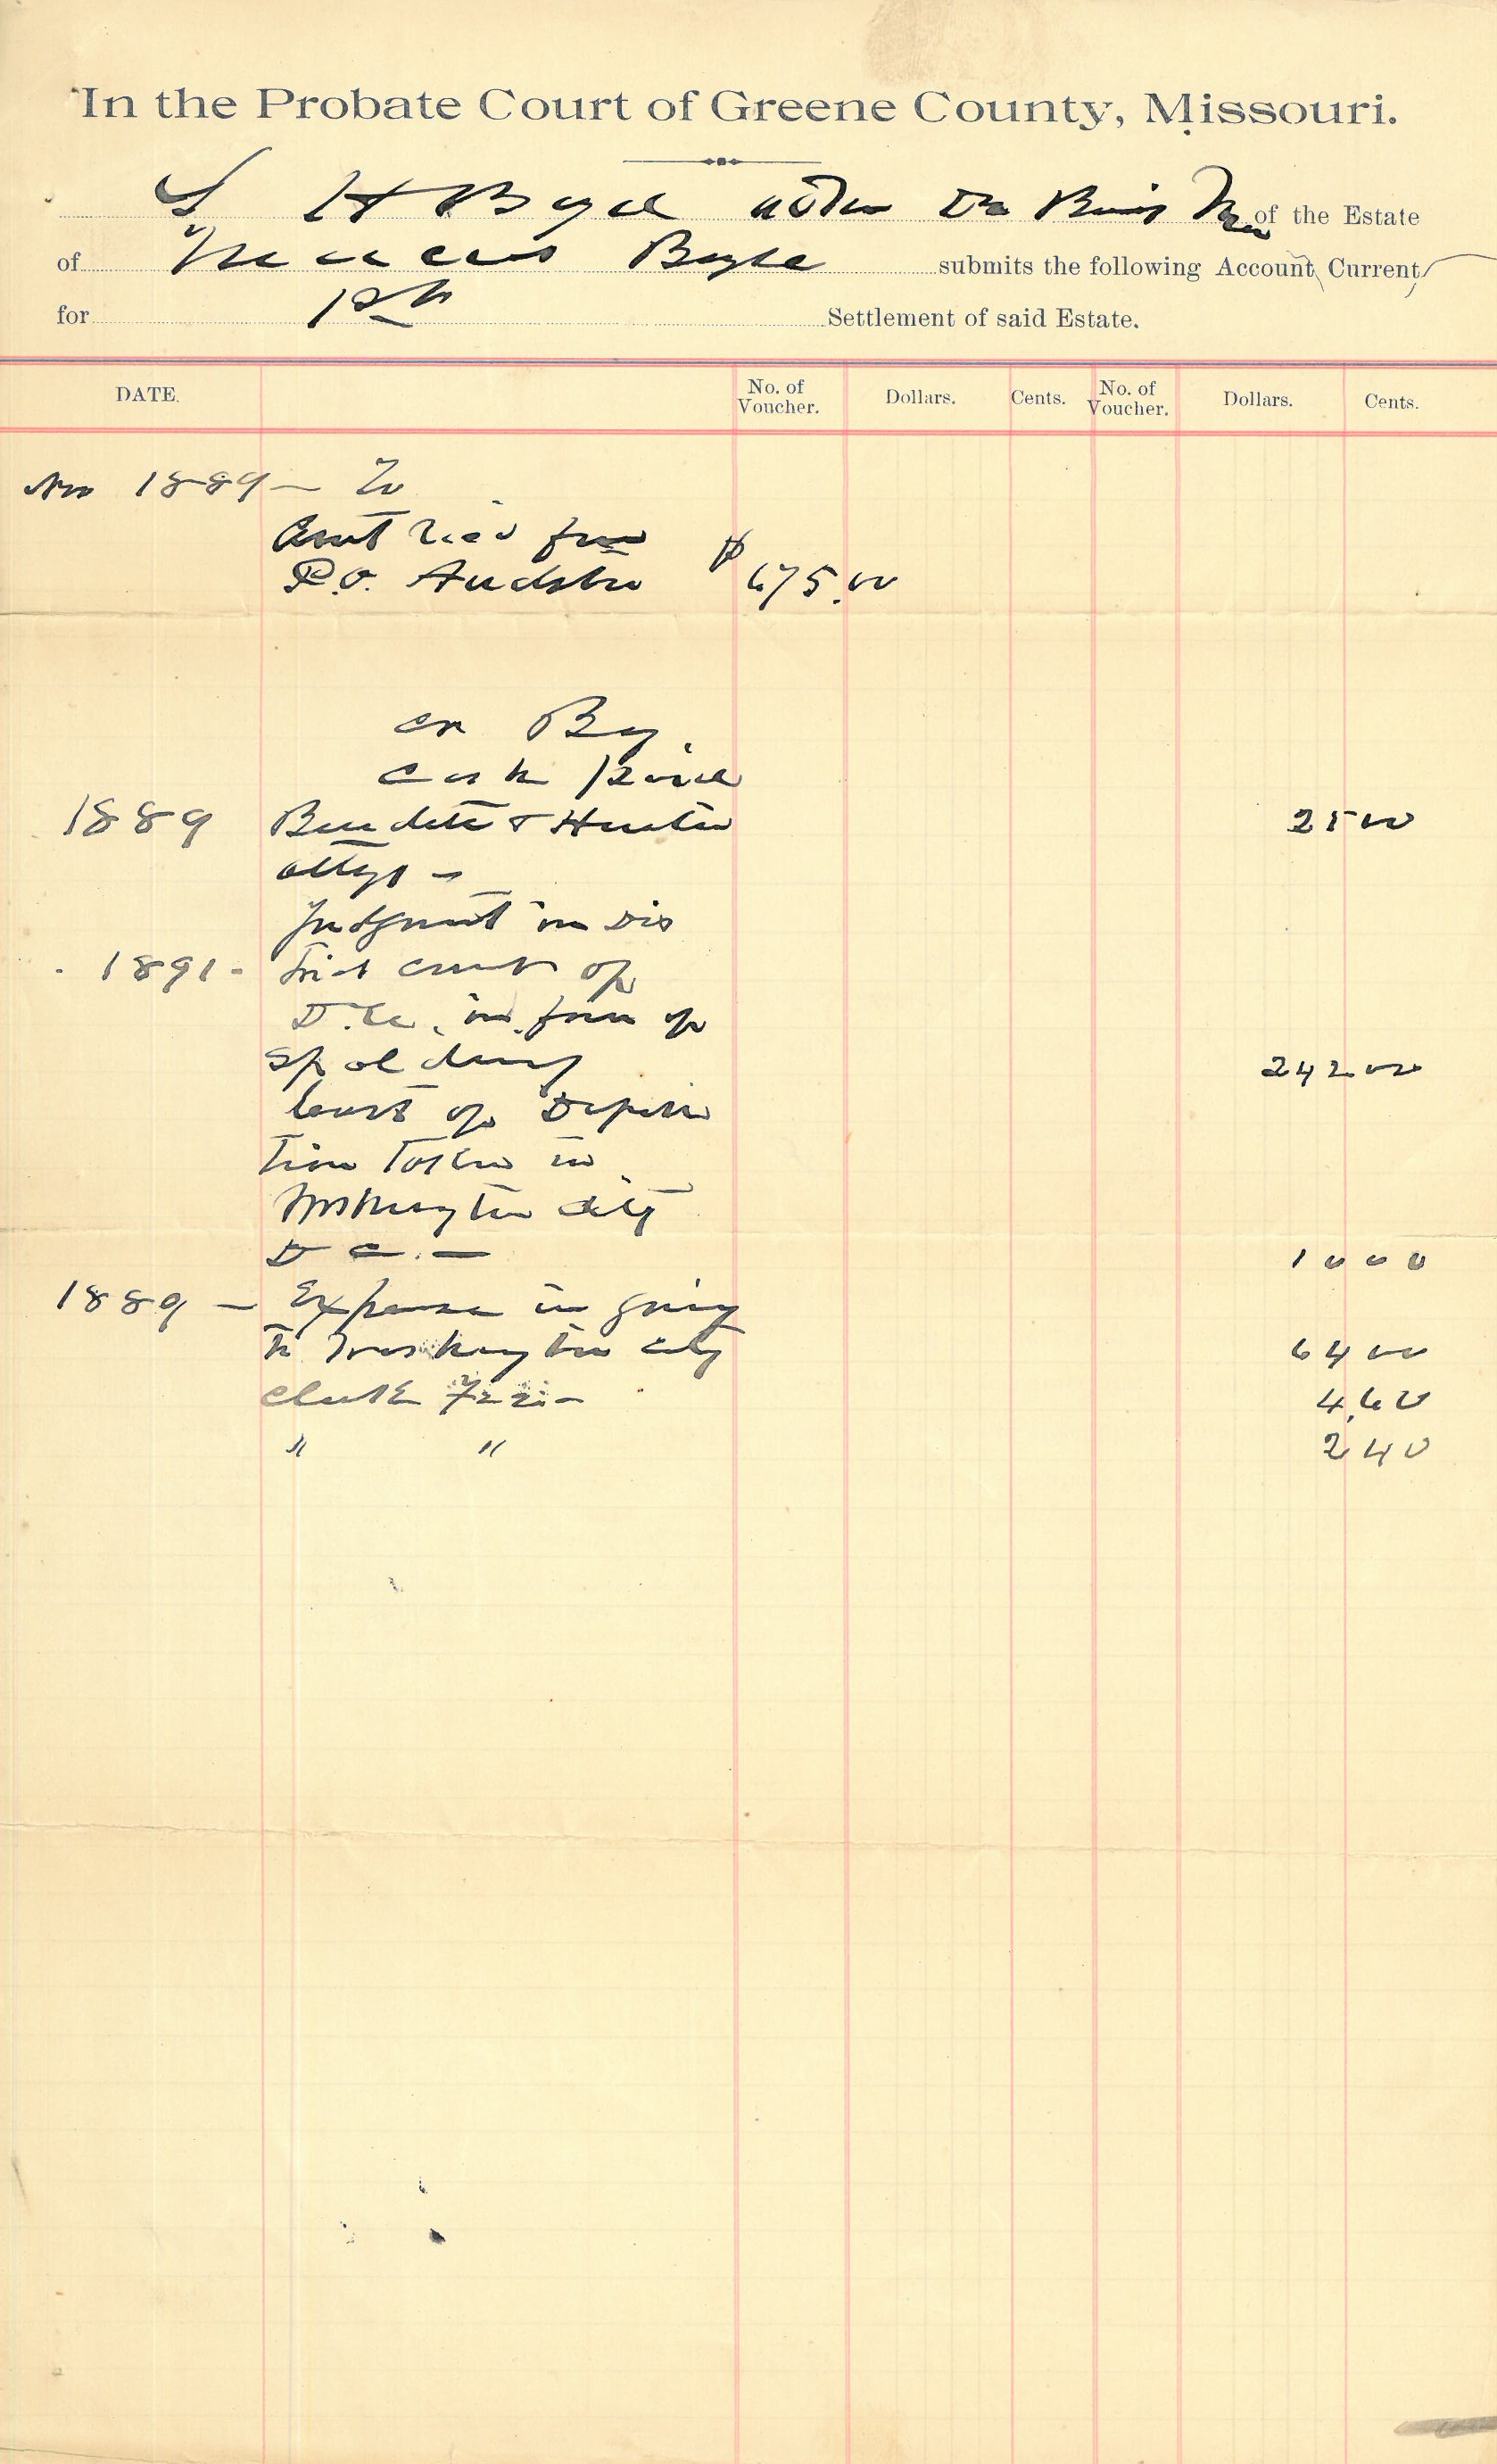 In the Probate Court of Greene County, Missouri.
S H Boyd adm De Bonis Non of the Estate
of Marcus Boyd submits the following Account Current
for 1st Settlement of said Estate.
DATE. No. of Voucher. Dollars. Cents. No. of Voucher. Dollars. Cents.
Nov 1889 — To
Amt recd from
P.O. Auditor $ 675.00
Cr By
Cash paid
1889 Burdett & Hunter 25 00
attys —
Judgment in Dis
1891 - trict court of
D.C. in favor of
Spalding 242 00
Cost of Deposi
tion Taken in
Washington City
D C. — 10 00
1889 — Expense in going
to Washington City 64 00
Clerk Fees — 4.60
" " 2 40